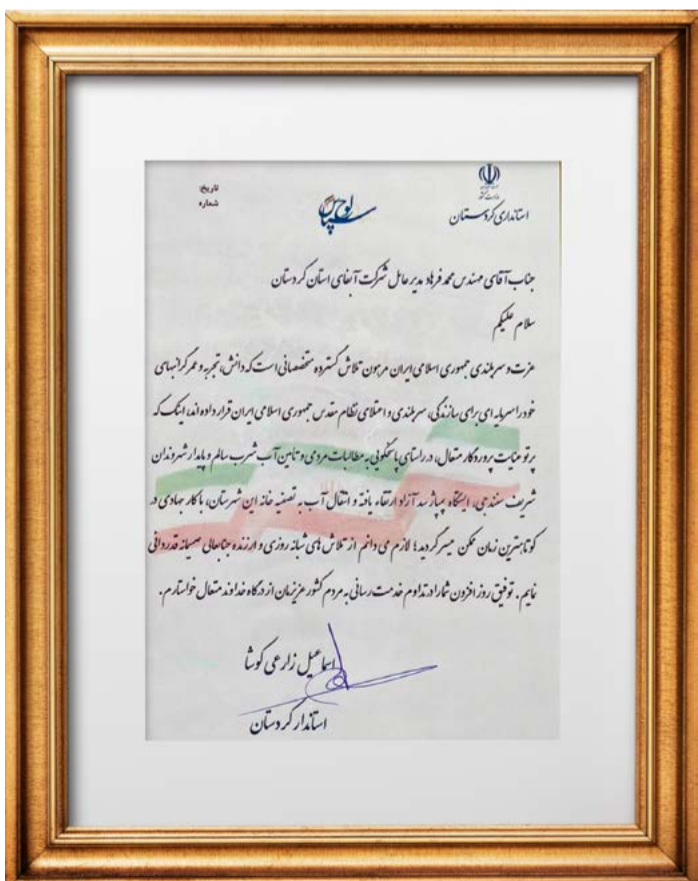 تاریخ:
شماره
وزارت کشور
استانداری کردستان
لوح سپاس
جناب آقای مهندس محمد فرهاد مدیرعامل شرکت آبفای استان کردستان
سلام علیکم
عزت و سربلندی جمهوری اسلامی ایران مرهون تلاش گسترده متخصصانی است که دانش، تجربه و عمر گرانبهای
خود را سرمایه ای برای سازندگی، سربلندی و اعتلای نظام مقدس جمهوری اسلامی ایران قرار داده اند، اینک که
پرتو عنایت پروردگار متعال، در راستای پاسخگویی به مطالبات مردمی و تامین آب شرب سالم و پایدار شهروندان
شریف سنندجی، ایستگاه پمپاژ سد آزاد ارتقاء یافته و انتقال آب به تصفیه خانه این شهرستان، با کار جهادی در
کوتاهترین زمان ممکن میسر گردید؛ لازم می دانم از تلاش های شبانه روزی و ارزنده جنابعالی صمیمانه قدردانی
نمایم. توفیق روز افزون شما را در تداوم خدمت رسانی به مردم کشور عزیزمان از درگاه خداوند متعال خواستارم.
اسماعیل زارعی کوشا
استاندار کردستان